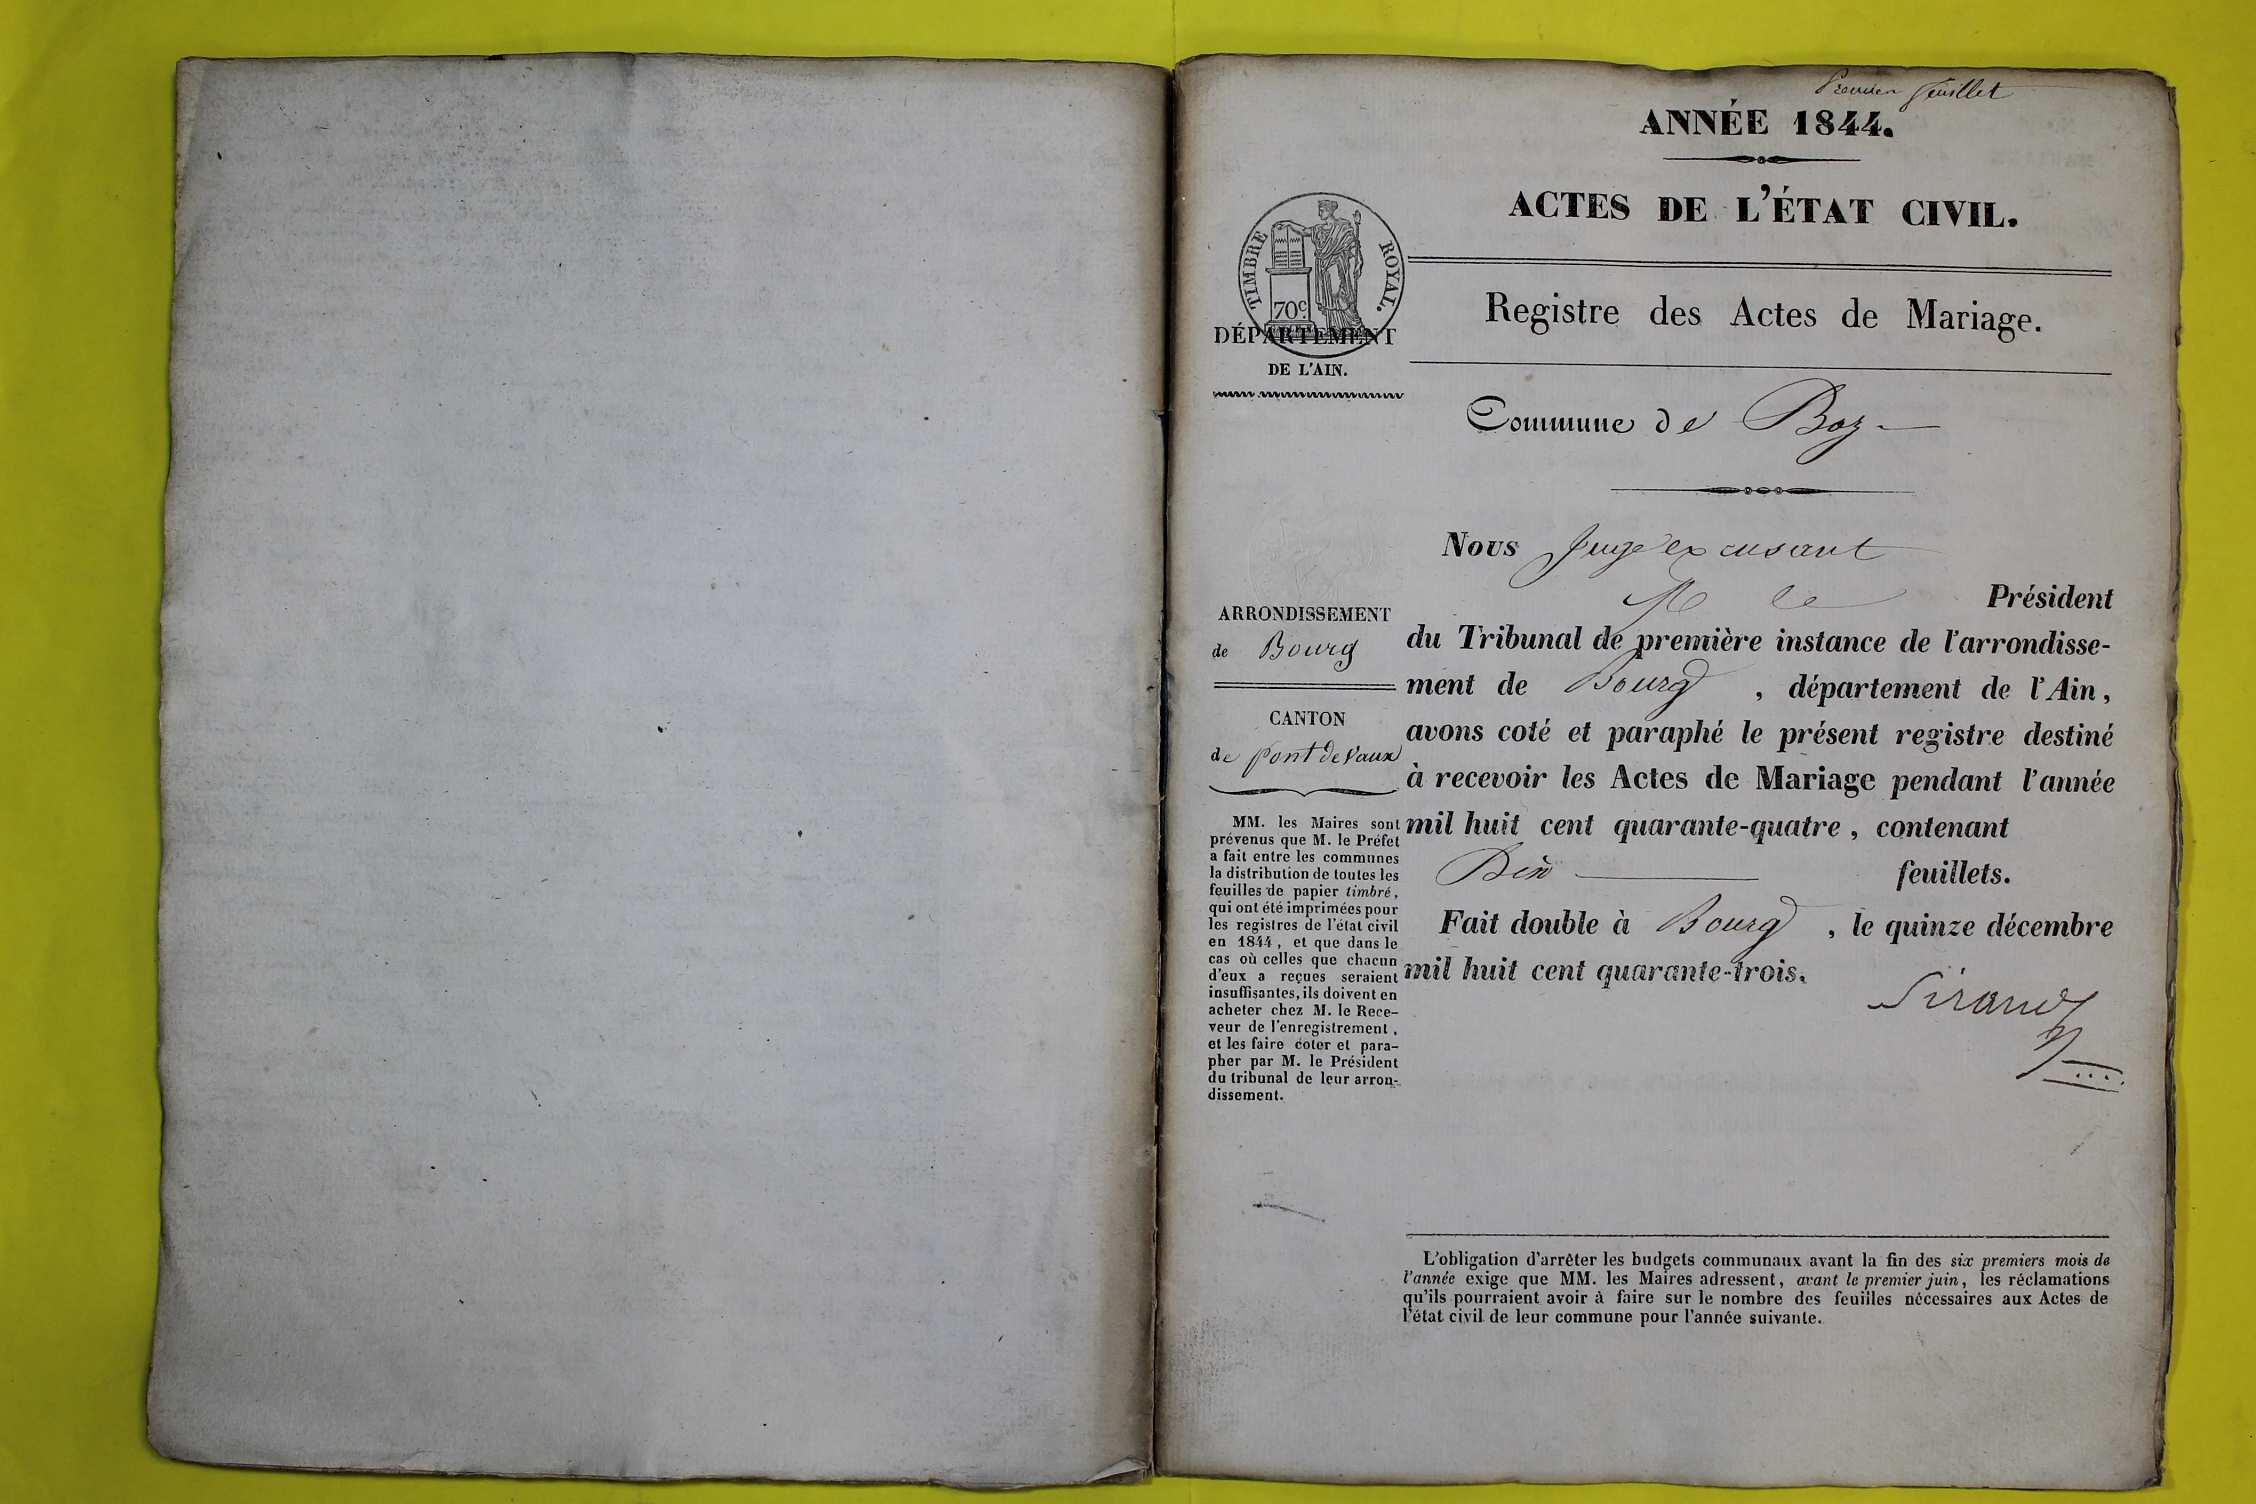 Premier feuillet
ANNÉE 1844.
ACTES DE L'ÉTAT CIVIL.
TIMBRE ROYAL.
70c.
DÉPARTEMENT
DE L'AIN.
Registre des Actes de Mariage.
Commune de Boz
ARRONDISSEMENT
de Bourg
CANTON
de Pont de Vaux
MM. les Maires sont
prévenus que M. le Préfet
a fait entre les communes
la distribution de toutes les
feuilles de papier timbré,
qui ont été imprimées pour
les registres de l'état civil
en 1844, et que dans le
cas où celles que chacun
d'eux a reçues seraient
insuffisantes, ils doivent en
acheter chez M. le Rece-
veur de l'enregistrement,
et les faire coter et para-
pher par M. le Président
du tribunal de leur arron-
dissement.
Nous Juge excusant
M le Président
du Tribunal de première instance de l'arrondisse-
ment de Bourg, département de l'Ain,
avons coté et paraphé le présent registre destiné
à recevoir les Actes de Mariage pendant l'année
mil huit cent quarante-quatre, contenant
Dix feuillets.
Fait double à Bourg, le quinze décembre
mil huit cent quarante-trois.
Sirand
L'obligation d'arrêter les budgets communaux avant la fin des six premiers mois de
l'année exige que MM. les Maires adressent, avant le premier juin, les réclamations
qu'ils pourraient avoir à faire sur le nombre des feuilles nécessaires aux Actes de
l'état civil de leur commune pour l'année suivante.